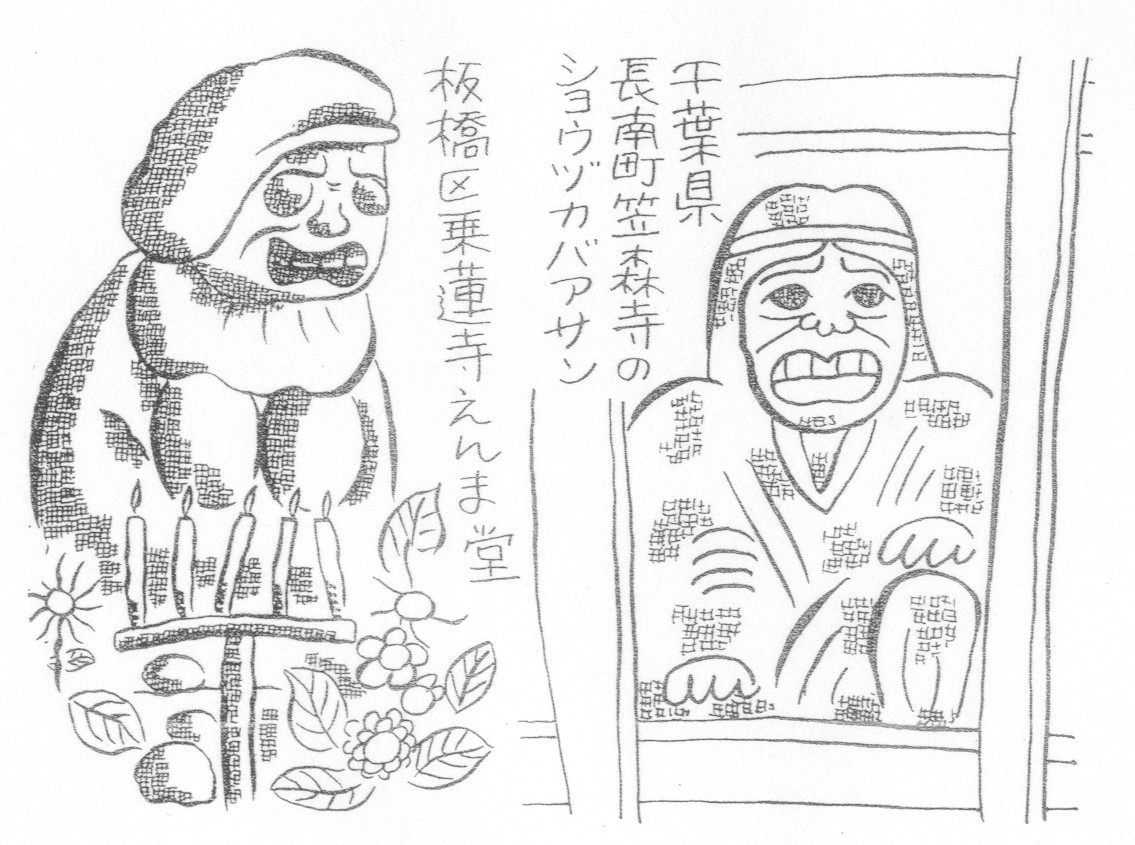 千葉県
長南町笠森寺の
ショウヅカバアサン
板橋区乗蓮寺えんま堂